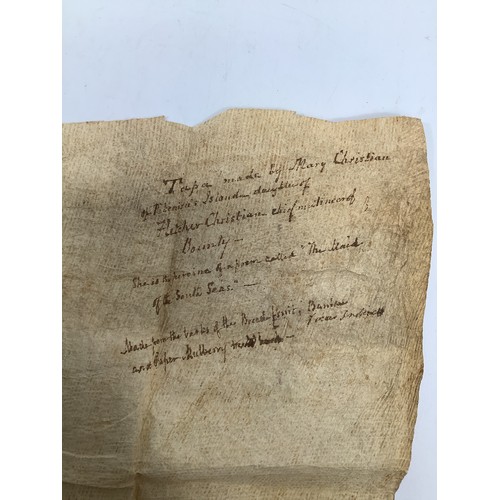 Tapa made by Mary Christian
Island daughter of
Fletcher Christian chief mutineer of
Bounty —
She is the heroine of a poem called "The Maid
of the South Seas." —
Made from the barks of the Bread fruit, Banian
and Paper Mulberry trees